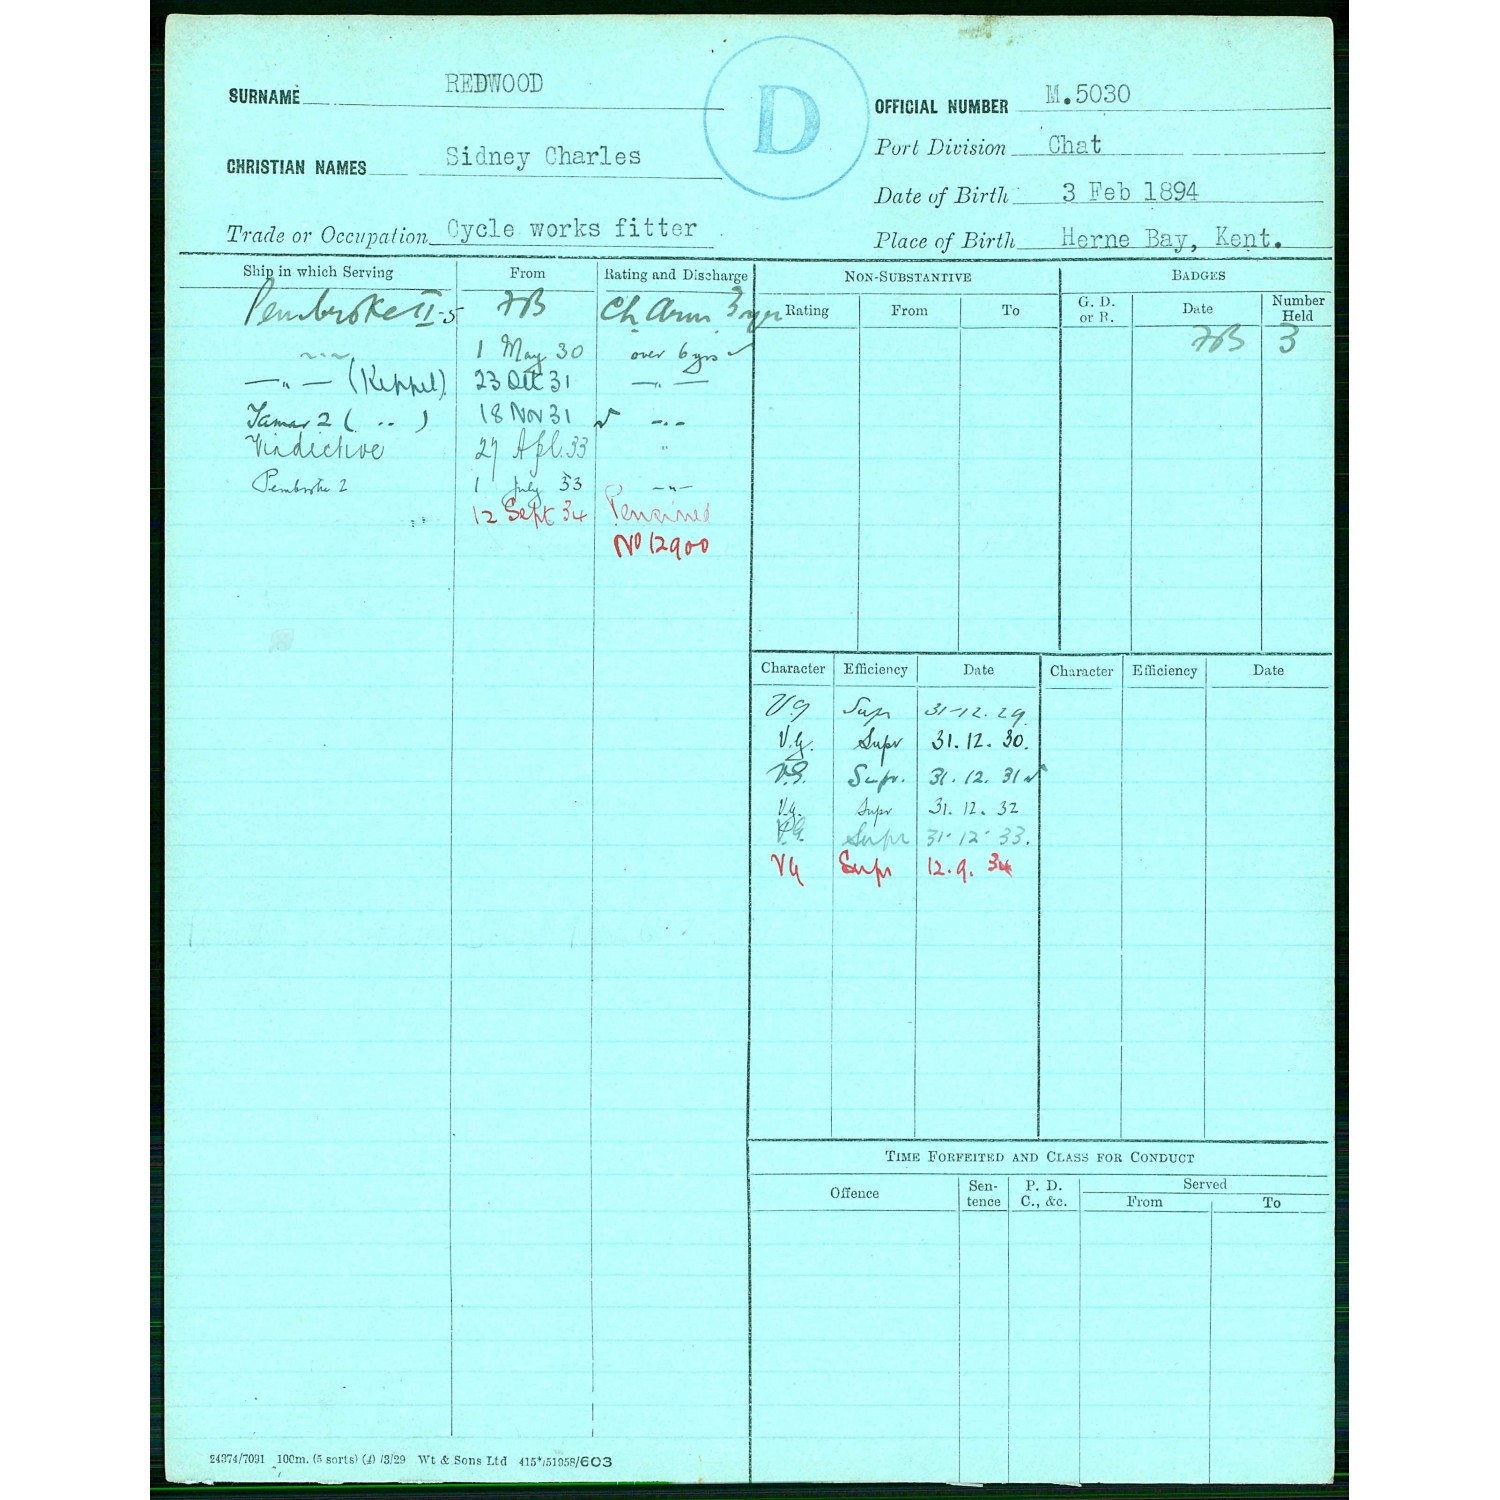 SURNAME REDWOOD
D
OFFICIAL NUMBER M.5030
CHRISTIAN NAMES Sidney Charles
Port Division Chat
Date of Birth 3 Feb 1894
Trade or Occupation Cycle works fitter
Place of Birth Herne Bay, Kent.
Ship in which Serving From Rating and Discharge
Pembroke II-5 Ch Arm 3 yrs
—"— 1 May 30 over 6 yrs
—"— (Keppel) 23 Oct 31 —"—
Tamar 2 ( " ) 18 Nov 31 —"—
Vindictive 27 Apl. 33 "
Pembroke 2 1 July 33 —"—
12 Sept 34 Pensioned
No 12900
NON-SUBSTANTIVE
Rating From To
BADGES
G. D. or R. Date Number Held
3
Character Efficiency Date Character Efficiency Date
V.G Supr 31-12.29
V.G. Supr 31.12.30.
V.G. Supr. 31.12.31
V.G. Supr 31.12.32
V.G. Supr 31-12-33.
VG Supr 12.9.34
TIME FORFEITED AND CLASS FOR CONDUCT
Offence Sentence P. D. C., &c. Served
From To
24374/7091 100m. (5 sorts) (4) /3/29 Wt & Sons Ltd 415*/51958/603